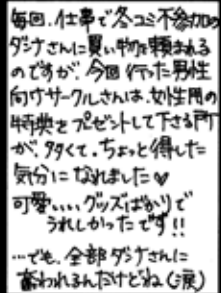 毎回、仕事で冬コミ不参加の
ダンナさんに買い物を頼まれる
のですが、今回行った男性
向けサークルさんは、女性用の
特典をプレゼントして下さる所
が、多くて。ちょっと得した
気分になれました♥
可愛いいグッズばかりで
うれしかったです!!
…でも、全部ダンナさんに
奪われるんだけどね(涙)